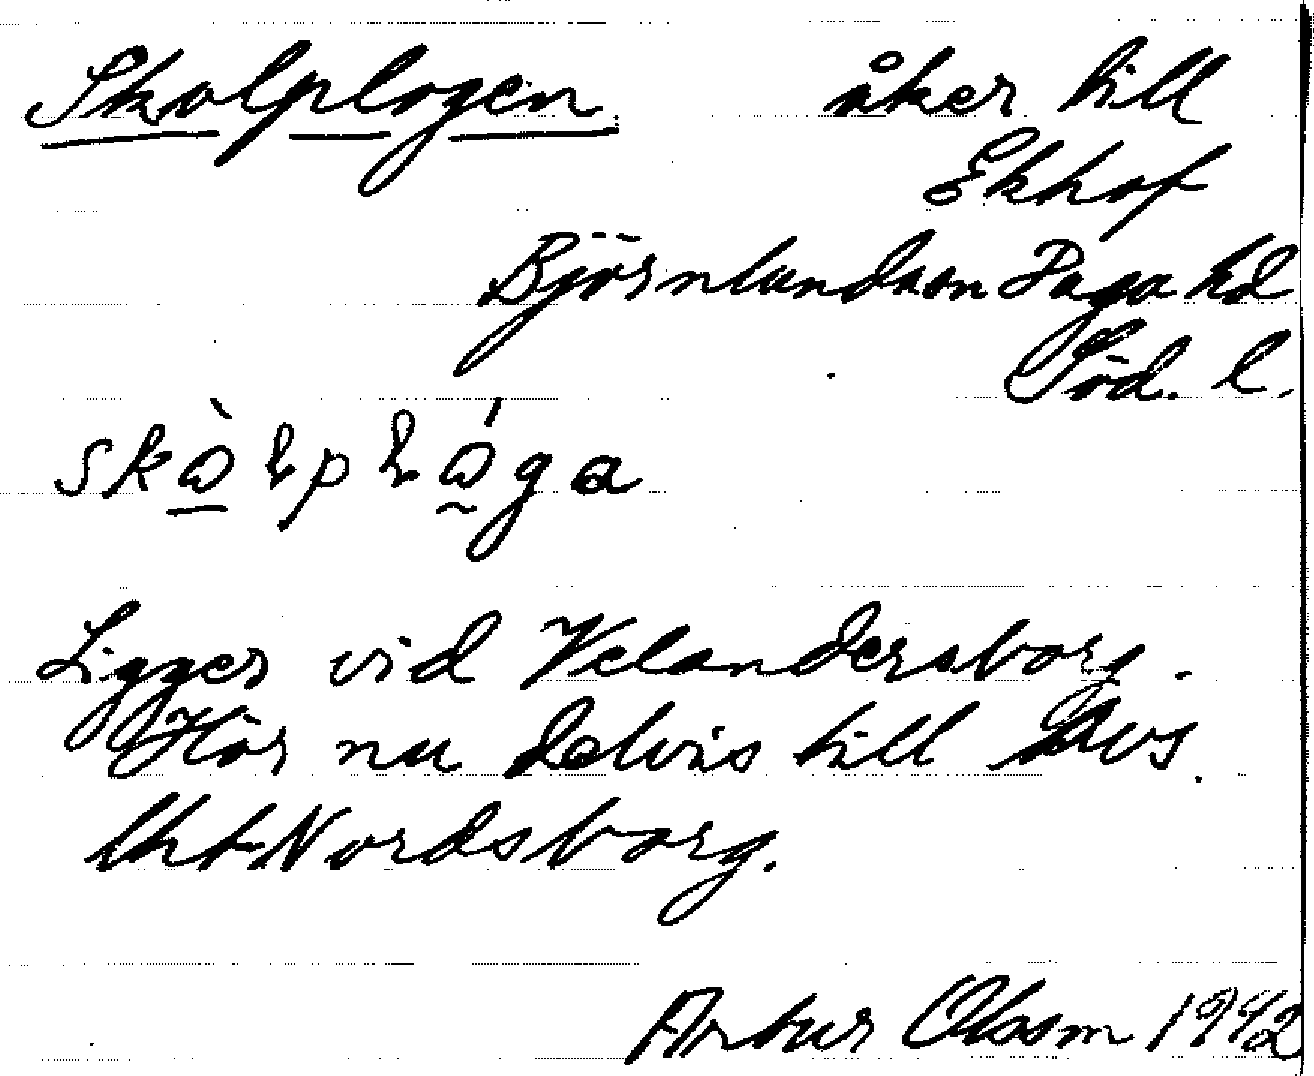 Skolplogen. åker till
Ekhof
Björnlunds sn Daga hd
Söd. l.
Ligger vid Velandersborg.
Hör nu delvis till Avs.
Nordsborg.
Artur Olsson 1942